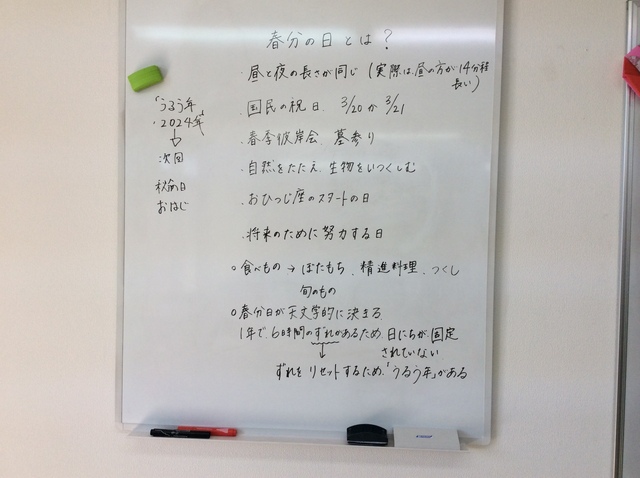 春分の日とは?
・昼と夜の長さが同じ (実際は昼の方が14分程
長い)
・国民の祝日、3/20か3/21
・春季彼岸会、墓参り
・自然をたたえ、生物をいつくしむ
・おひつじ座のスタートの日
・将来のために努力する日
○食べもの → ぼたもち、精進料理、つくし
旬のもの
○春分日が天文学的に決まる
1年で、6時間のずれがあるため、日にちが、固定
されていない
ずれをリセットするため、「うるう年」がある
「うるう年
・2024年」
↓
次回